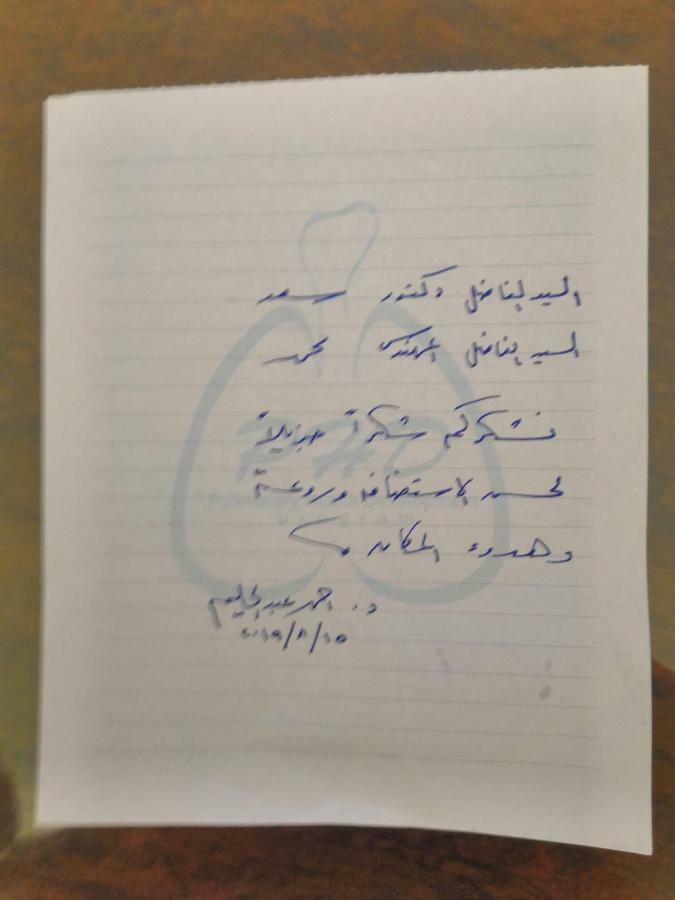 السيد الفاضل دكتور سعد
السيد الفاضل المهندس محمد
نشكركم شكراً جزيلاً
لحسن الاستضافة وروعة
وهدوء المكان
د. احمد عبد الحليم
٢٠١٩/٨/١٥
PHD
Pulmonary Development